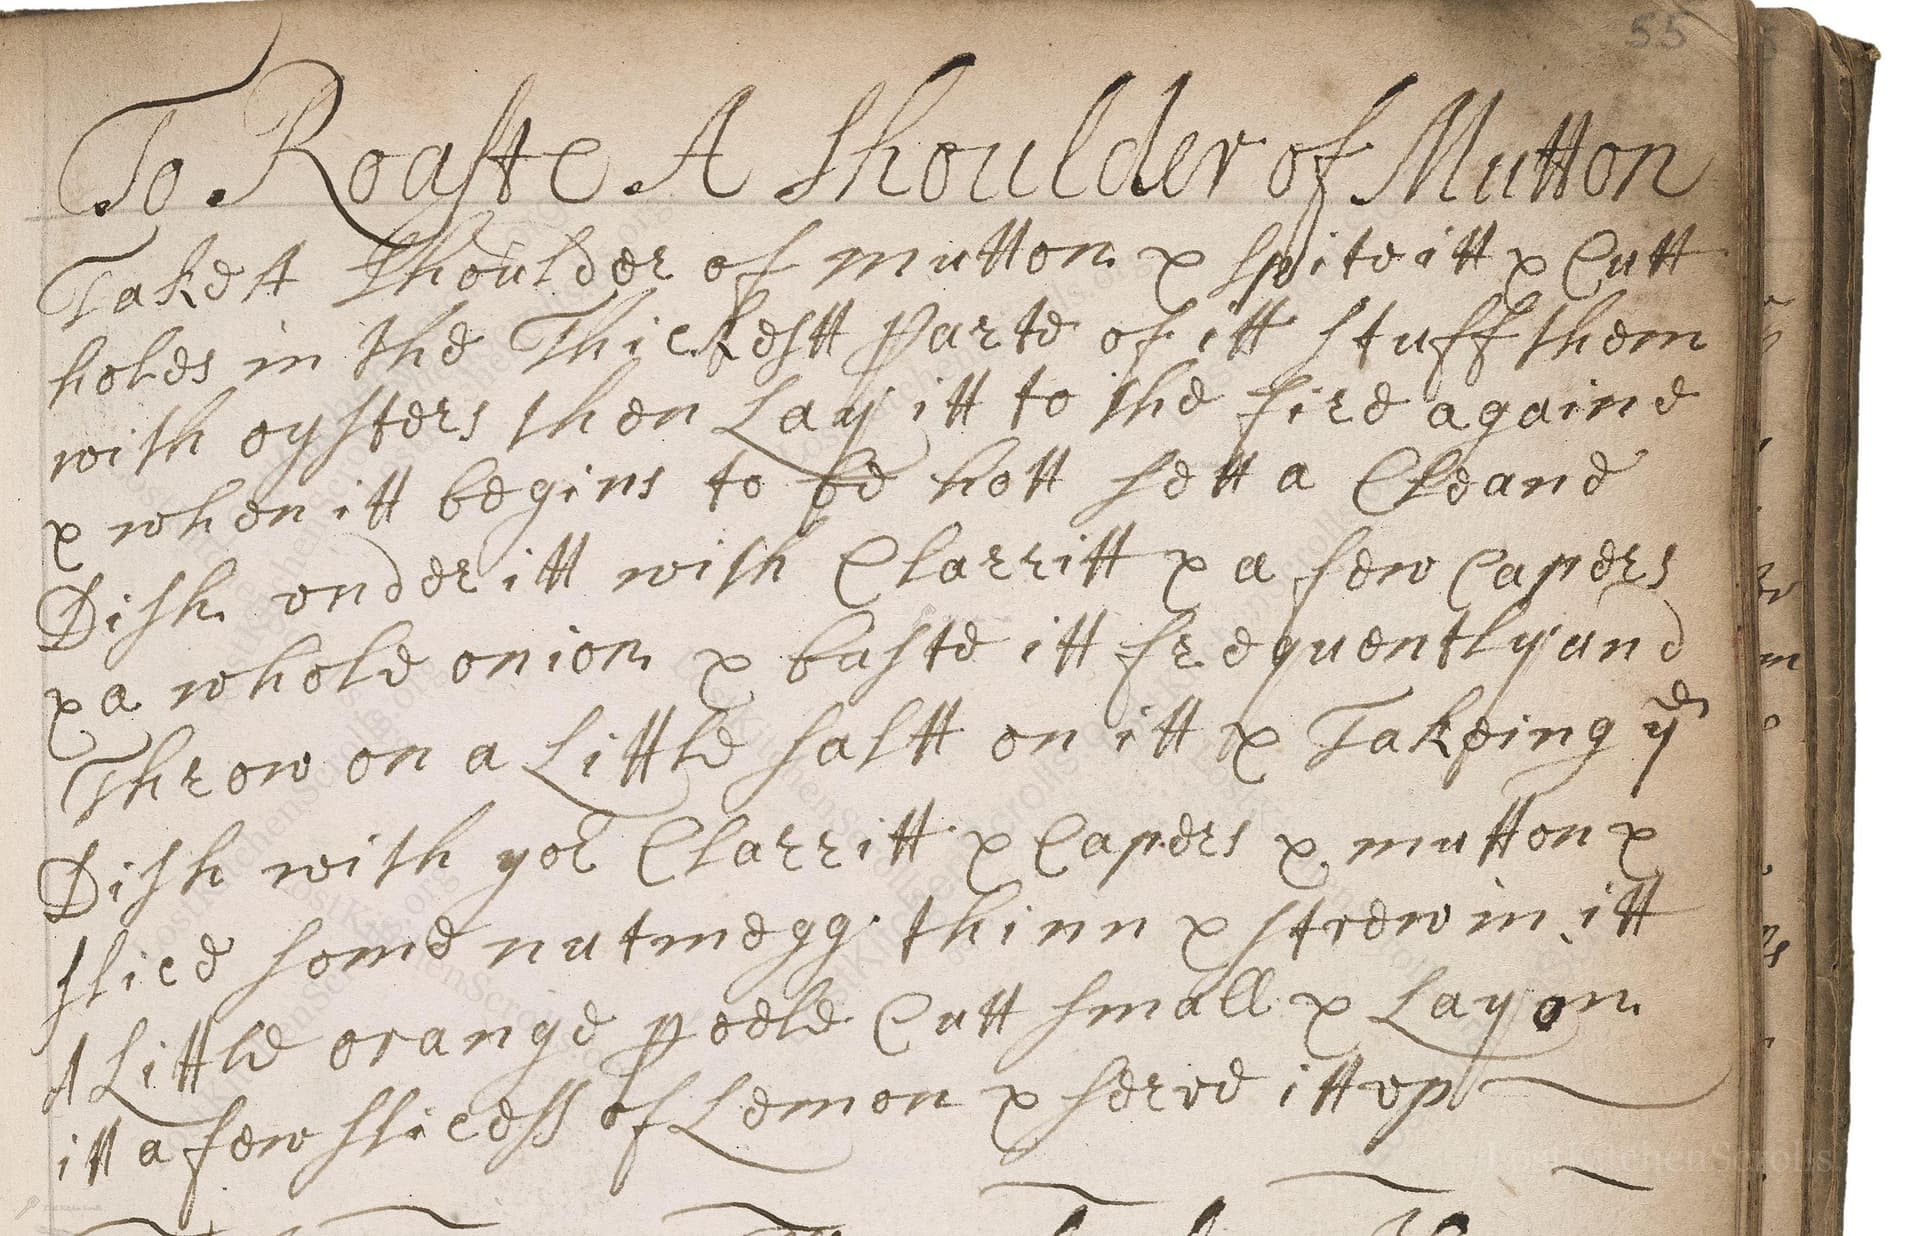 55
To Roaste A Shoulder of Mutton
Take A Shoulder of mutton & spite itt & Cutt
holes in the Thickestt Parte of itt stuff them
with oysters then Lay itt to the fire againe
& when itt begins to be hott sett a Cleane
Dish vnder itt with Clarritt & a few Capers
& a whole onion & baste itt frequently and
Throw on a Little saltt on itt & Takeing ye
Dish with yor Clarritt & Capers & mutton &
slice some nutmegg thinn & strew in itt
A Little orange peele Cutt small & Lay on
itt a few slicess of Lemon & serve itt vp
LostKitchenScrolls